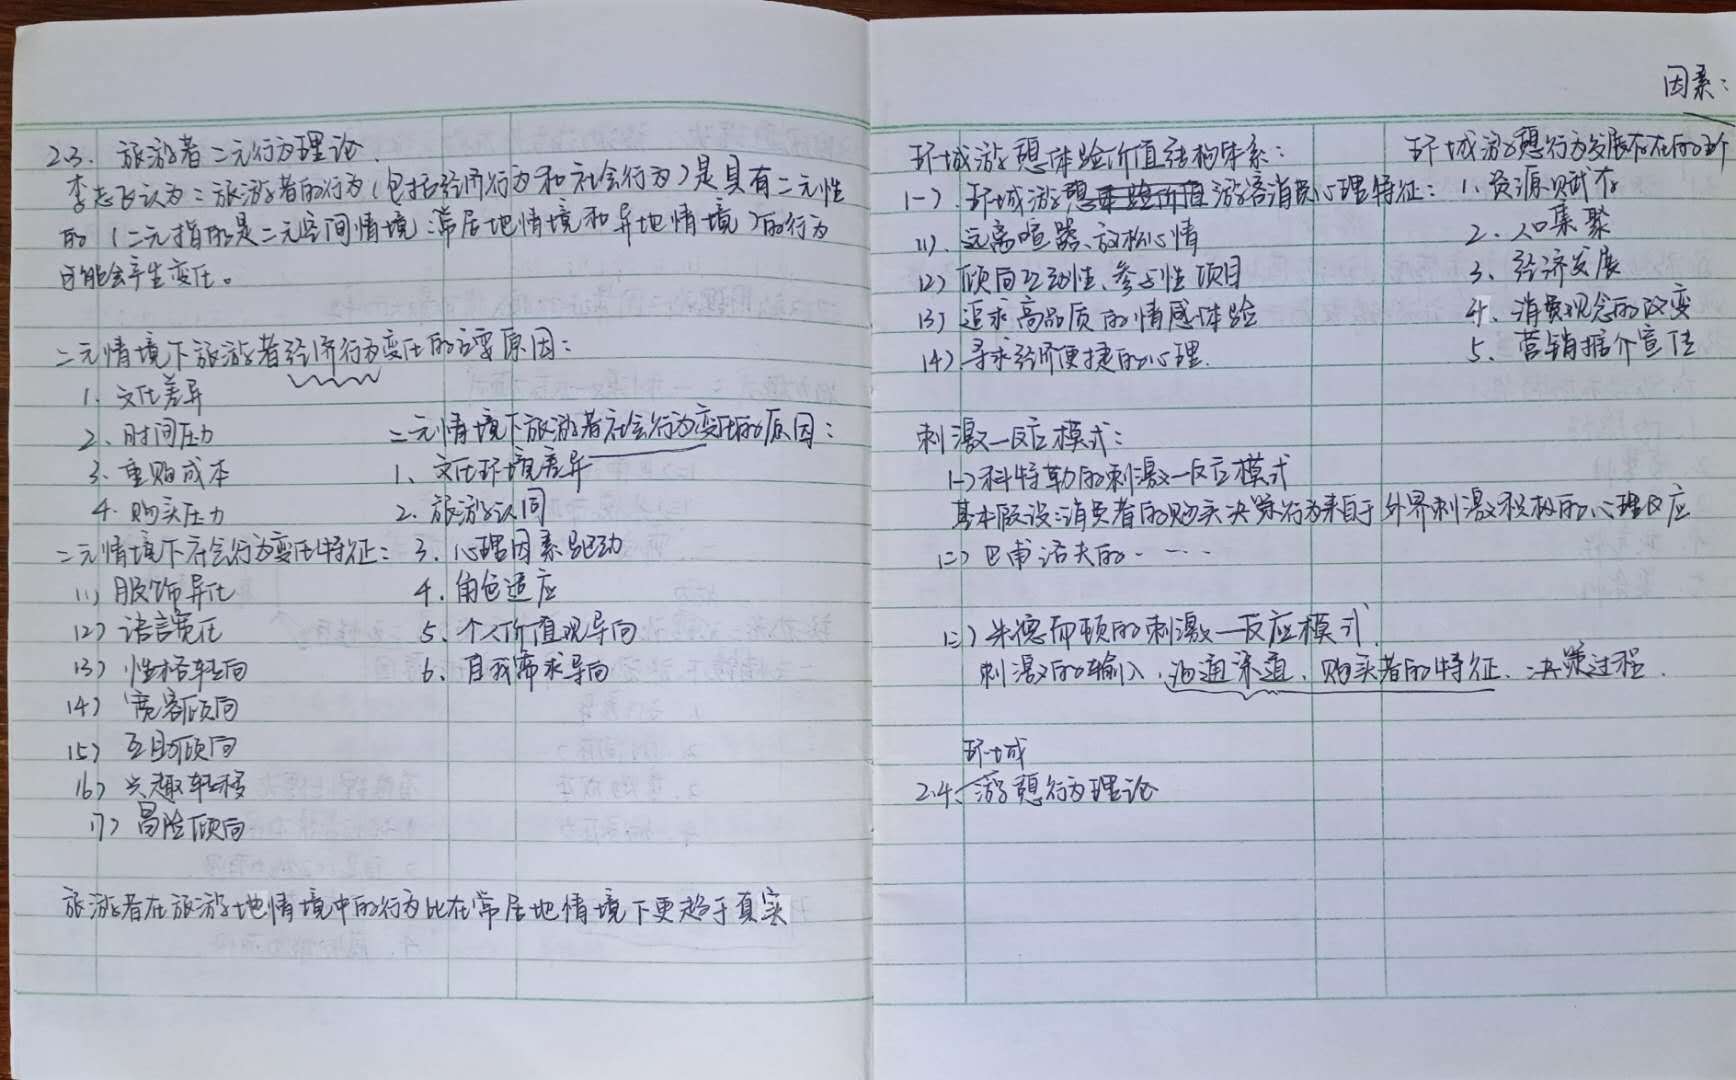 2.3. 旅游者二元行为理论.
李志飞认为:旅游者的行为(包括经济行为和社会行为)是具有二元性
的(二元指的是二元空间情境:常居地情境和异地情境)的行为
可能会产生变化。
二元情境下旅游者经济行为变化的主要原因:
1. 文化差异
2. 时间压力
3. 重购成本
4. 购买压力
二元情境下旅游者社会行为变化的原因:
1. 文化环境差异
2. 旅游认同
3. 心理因素驱动
4. 角色适应
5. 个人价值观导向
6. 自我需求导向
二元情境下社会行为变化特征:
(1) 服饰异化
(2) 语言宽泛
(3) 性格转向
(4) 宽容倾向
(5) 互助倾向
(6) 兴趣转移
(7) 冒险倾向
旅游者在旅游地情境中的行为比在常居地情境下更趋于真实
环城游憩体验价值结构体系:
(一) 环城游憩游客消费心理特征:
(1) 远离喧嚣、放松心情
(2) 倾向互动性、参与性项目
(3) 追求高品质的情感体验
(4) 寻求经济便捷的心理.
因素:
环城游憩行为发展存在的影
1. 资源赋存
2. 人口集聚
3. 经济发展
4. 消费观念的改变
5. 营销推介宣传
刺激—反应模式:
(一) 科特勒的刺激—反应模式
基本假设:消费者的购买决策行为来自于外界刺激积极的心理反应
(二) 巴甫洛夫的····
(三) 朱德而顿的刺激—反应模式.
刺激的输入、沟通渠道、购买者的特征、决策过程.
2.4. 环城游憩行为理论